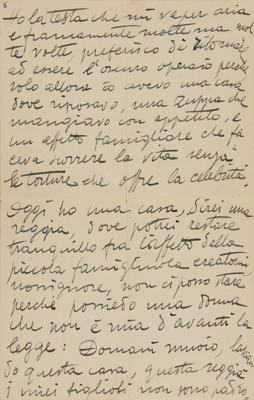 5
Ho la testa che mi va per aria
e francamente molte ma mol
te volte, preferisco di ritornare
ad essere l'oscuro operaio perchè
solo allora io avevo una casa
dove riposavo, una zuppa che
mangiavo con appetito, e
un affetto famigliare che fa
ceva scorrere la vita senza
le torture che offre la celebrità.
Oggi ho una casa, direi una
reggia, dove potrei restare
tranquillo fra l'affetto della
piccola famigliuola creatomi
nossignore, non ci posso stare
perchè possiedo una donna
che non è mia d'avanti la
legge: Domani muoio, lascian
do questa casa, questa reggia
i miei figlioli non sono padro